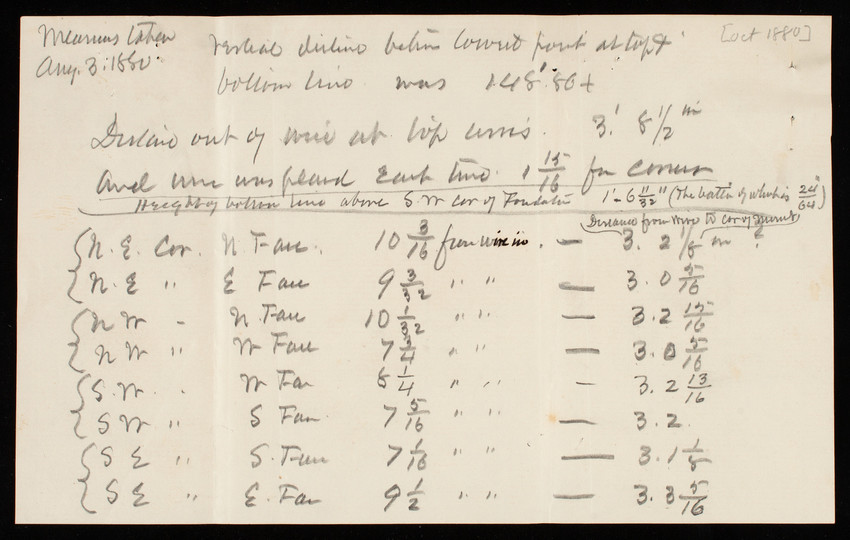 Measures taken
Aug. 3. 1880.
[Oct 1880]
Vertical distance between lowest point at top &
bottom line was 148'.86 +
Distance out of wire at top was. 3.' 8 1/2 in
and wire was placed each time 1 15/16 for corner
Height of bottom line above S. W cor of Foundation 1'-6 11/32" (The batter of which is 24/64")
Distance from wire to cor of Monmt
N. E. Cor. N Face. 10 3/16 from wire in. — 3. 2 1/8 in ?
N. E " E Face 9 3/32 " " — 3. 0 5/16
N W - N. Face 10 1/32 " " — 3. 2 15/16
N W " W Face 7 3/4 " " — 3. 0 5/16
S. W. . W Fa 8 1/4 " " — 3. 2 13/16
S W " S Fa 7 5/16 " " — 3. 2.
S E " S. Face 7 1/16 " " — 3. 1 1/8
S E " E. Fa 9 1/2 " " — 3. 3 5/16